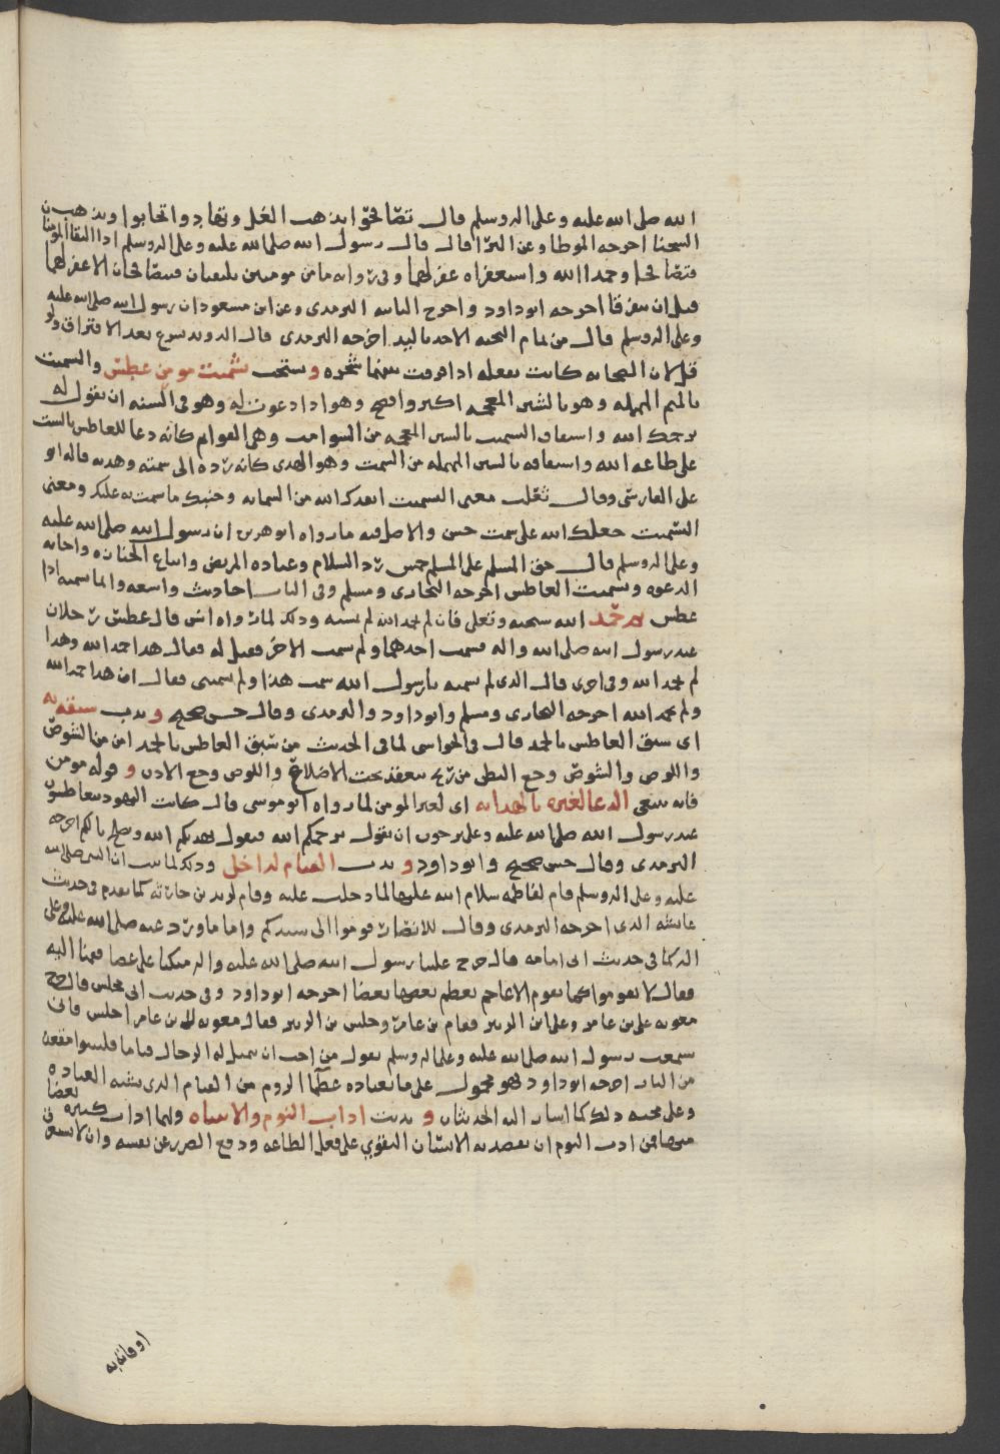 الله صلى الله عليه وعلى اله وسلم قال تصافحوا يذهب الغل وتهادوا تحابوا وتذهب
الشحنا اخرجه الموطا وعن البرا قال قال رسول الله صلى الله عليه وعلى اله وسلم اذا التقا المومنان
فتصافحا وحمدا الله واستغفراه غفر لهما وفي رواية ما من مومنين يلتقيان فيتصافحان الا غفر لهما
قبل ان يتفرقا اخرجه ابو داود واخرج الثانيه الترمذي وعن ابن مسعود ان رسول الله صلى الله عليه
وعلى اله وسلم قال من تمام التحيه الاخذ باليد اخرجه الترمذي قال الدويد بعد الافتراق ولو
قل لان الصحابه كانت تفعله اذا فرقت بينهما شجره ويستحب تشميت مومن عطس والتسميت
بالسين المهمله وهو بالشين المعجمه اكثر وافصح وهو اذا دعوت له وهو في السنه ان يقول له
يرحمك الله واشتقاق التشميت بالشين المعجمه من الشوامت وهي القوايم كانه دعا للعاطس بالثبت
على طاعه الله واشتقاقه بالسين المهمله من السمت وهو الهدى كانه رده الى سمته وهديه قاله ابو
على الفارسي وقال ثعلب معنى التشميت ابعدك الله من الشماته وجنبك ما يشمت به عليك ومعنى
التسميت جعلك الله على سمت حسن والاصل فيه ما رواه ابو هريره ان رسول الله صلى الله عليه
وعلى اله وسلم قال حق المسلم على المسلم خمس رد السلام وعياده المريض واتباع الجنازه واجابه
الدعوه وتشميت العاطس اخرجه البخاري ومسلم وفي الباب احاديث واسعه وانما يشمته اذا
عطس فحمد الله سبحنه وتعلى فان لم يحمد الله لم يشمته وذلك لما رواه انس قال عطس رجلان
عند رسول الله صلى الله واله فشمت احدهما ولم يشمت الاخر فقيل له فقال هذا حمد الله وهذا
لم يحمد الله وفي اخرى قال الذي لم يشمته يا رسول الله شمت هذا ولم تشمتني فقال ان هذا حمد الله
ولم تحمد الله اخرجه البخاري ومسلم وابو داود والترمذي وقال حسن صحيح وندب سبقه به
اي سبق العاطس بالحمد قال في الحواشي لما في الحديث من سبق العاطس بالحمد امن من الشوص
واللوص والشوص وجع البطن من ريح ينعقد تحت الاضلاع واللوص وجع الاذن وقوله مومن
فانه ينبغي الدعا لغيره بالهدايه اي لغير المومن لما رواه ابو موسى قال كانت اليهود يتعاطسون
عند رسول الله صلى الله عليه وعلى يرجون ان يقول يرحمكم الله فيقول يهديكم الله ويصلح بالكم اخرجه
الترمذي وقال حسن صحيح وابو داود وندب القيام لداخل وذلك لما ثبت ان النبي صلى الله
عليه وعلى اله وسلم قام لفاطمه سلام الله عليها لما دخلت عليه وقام لزيد بن حارثه كما تقدم في حديث
عائشه الذي اخرجه الترمذي وقال للانصار قوموا الى سيدكم واما ما ورد عنه صلى الله عليه وعلى
اله كما في حديث ابي امامه قال خرج علينا رسول الله صلى الله عليه واله متكئا على عصا فقمنا اليه
فقال لا تقوموا كما تقوم الاعاجم يعظم بعضها بعضا اخرجه ابو داود وفي حديث ابي مجلس قال خرج
معويه على بن عامر وعلى ابن الزبير فقام بن عامر وجلس بن الزبير فقال معويه لابن عامر اجلس فاني
سمعت رسول الله صلى الله عليه وعلى اله وسلم يقول من احب ان يتمثل له الرجال قياما فليتبوا مقعده
من النار اخرجه ابو داود فهو محمول على ما يعتاده عظما الروم من القيام الذي يشبه العباده
وعلى محبه ذلك كما اشار اليه الحديثان وندبت اداب النوم والانتباه ولهما اداب كثيره
منها من ادب النوم ان يقصد به الانسان التقوي على فعل الطاعه ودفع الضرر عن نفسه وان لا يستغرق
اوقاته به